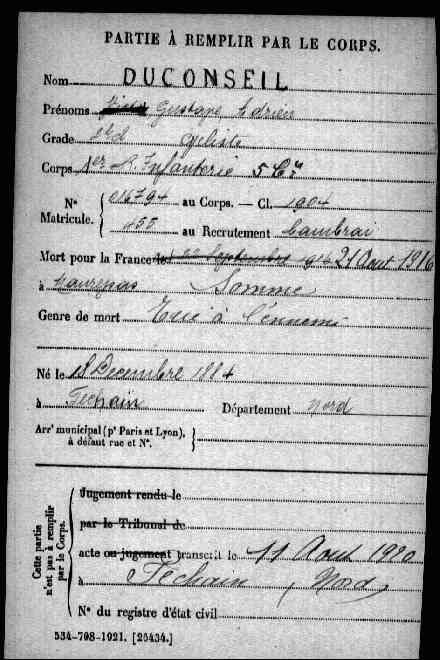 PARTIE À REMPLIR PAR LE CORPS.
Nom DUCONSEIL
Prénoms Gustave Adrien
Grade cycliste
Corps 1er R. Infanterie 5 Cie
N° Matricule. { 016794 au Corps. — Cl. 1904
455 au Recrutement Cambrai
Mort pour la France le 21 Aout 1916
à Maurepas Somme
Genre de mort Tué à l'ennemi
Né le 18 Decembre 1884
à Fechain Département Nord
Arrt municipal (pr Paris et Lyon), à défaut rue et N°. }
Cette partie n'est pas à remplir par le Corps.
Jugement rendu le
par le Tribunal de
acte ou jugement transcrit le 11 Aout 1920
à Féchain (Nord)
N° du registre d'état civil
534-708-1921. [26434.]